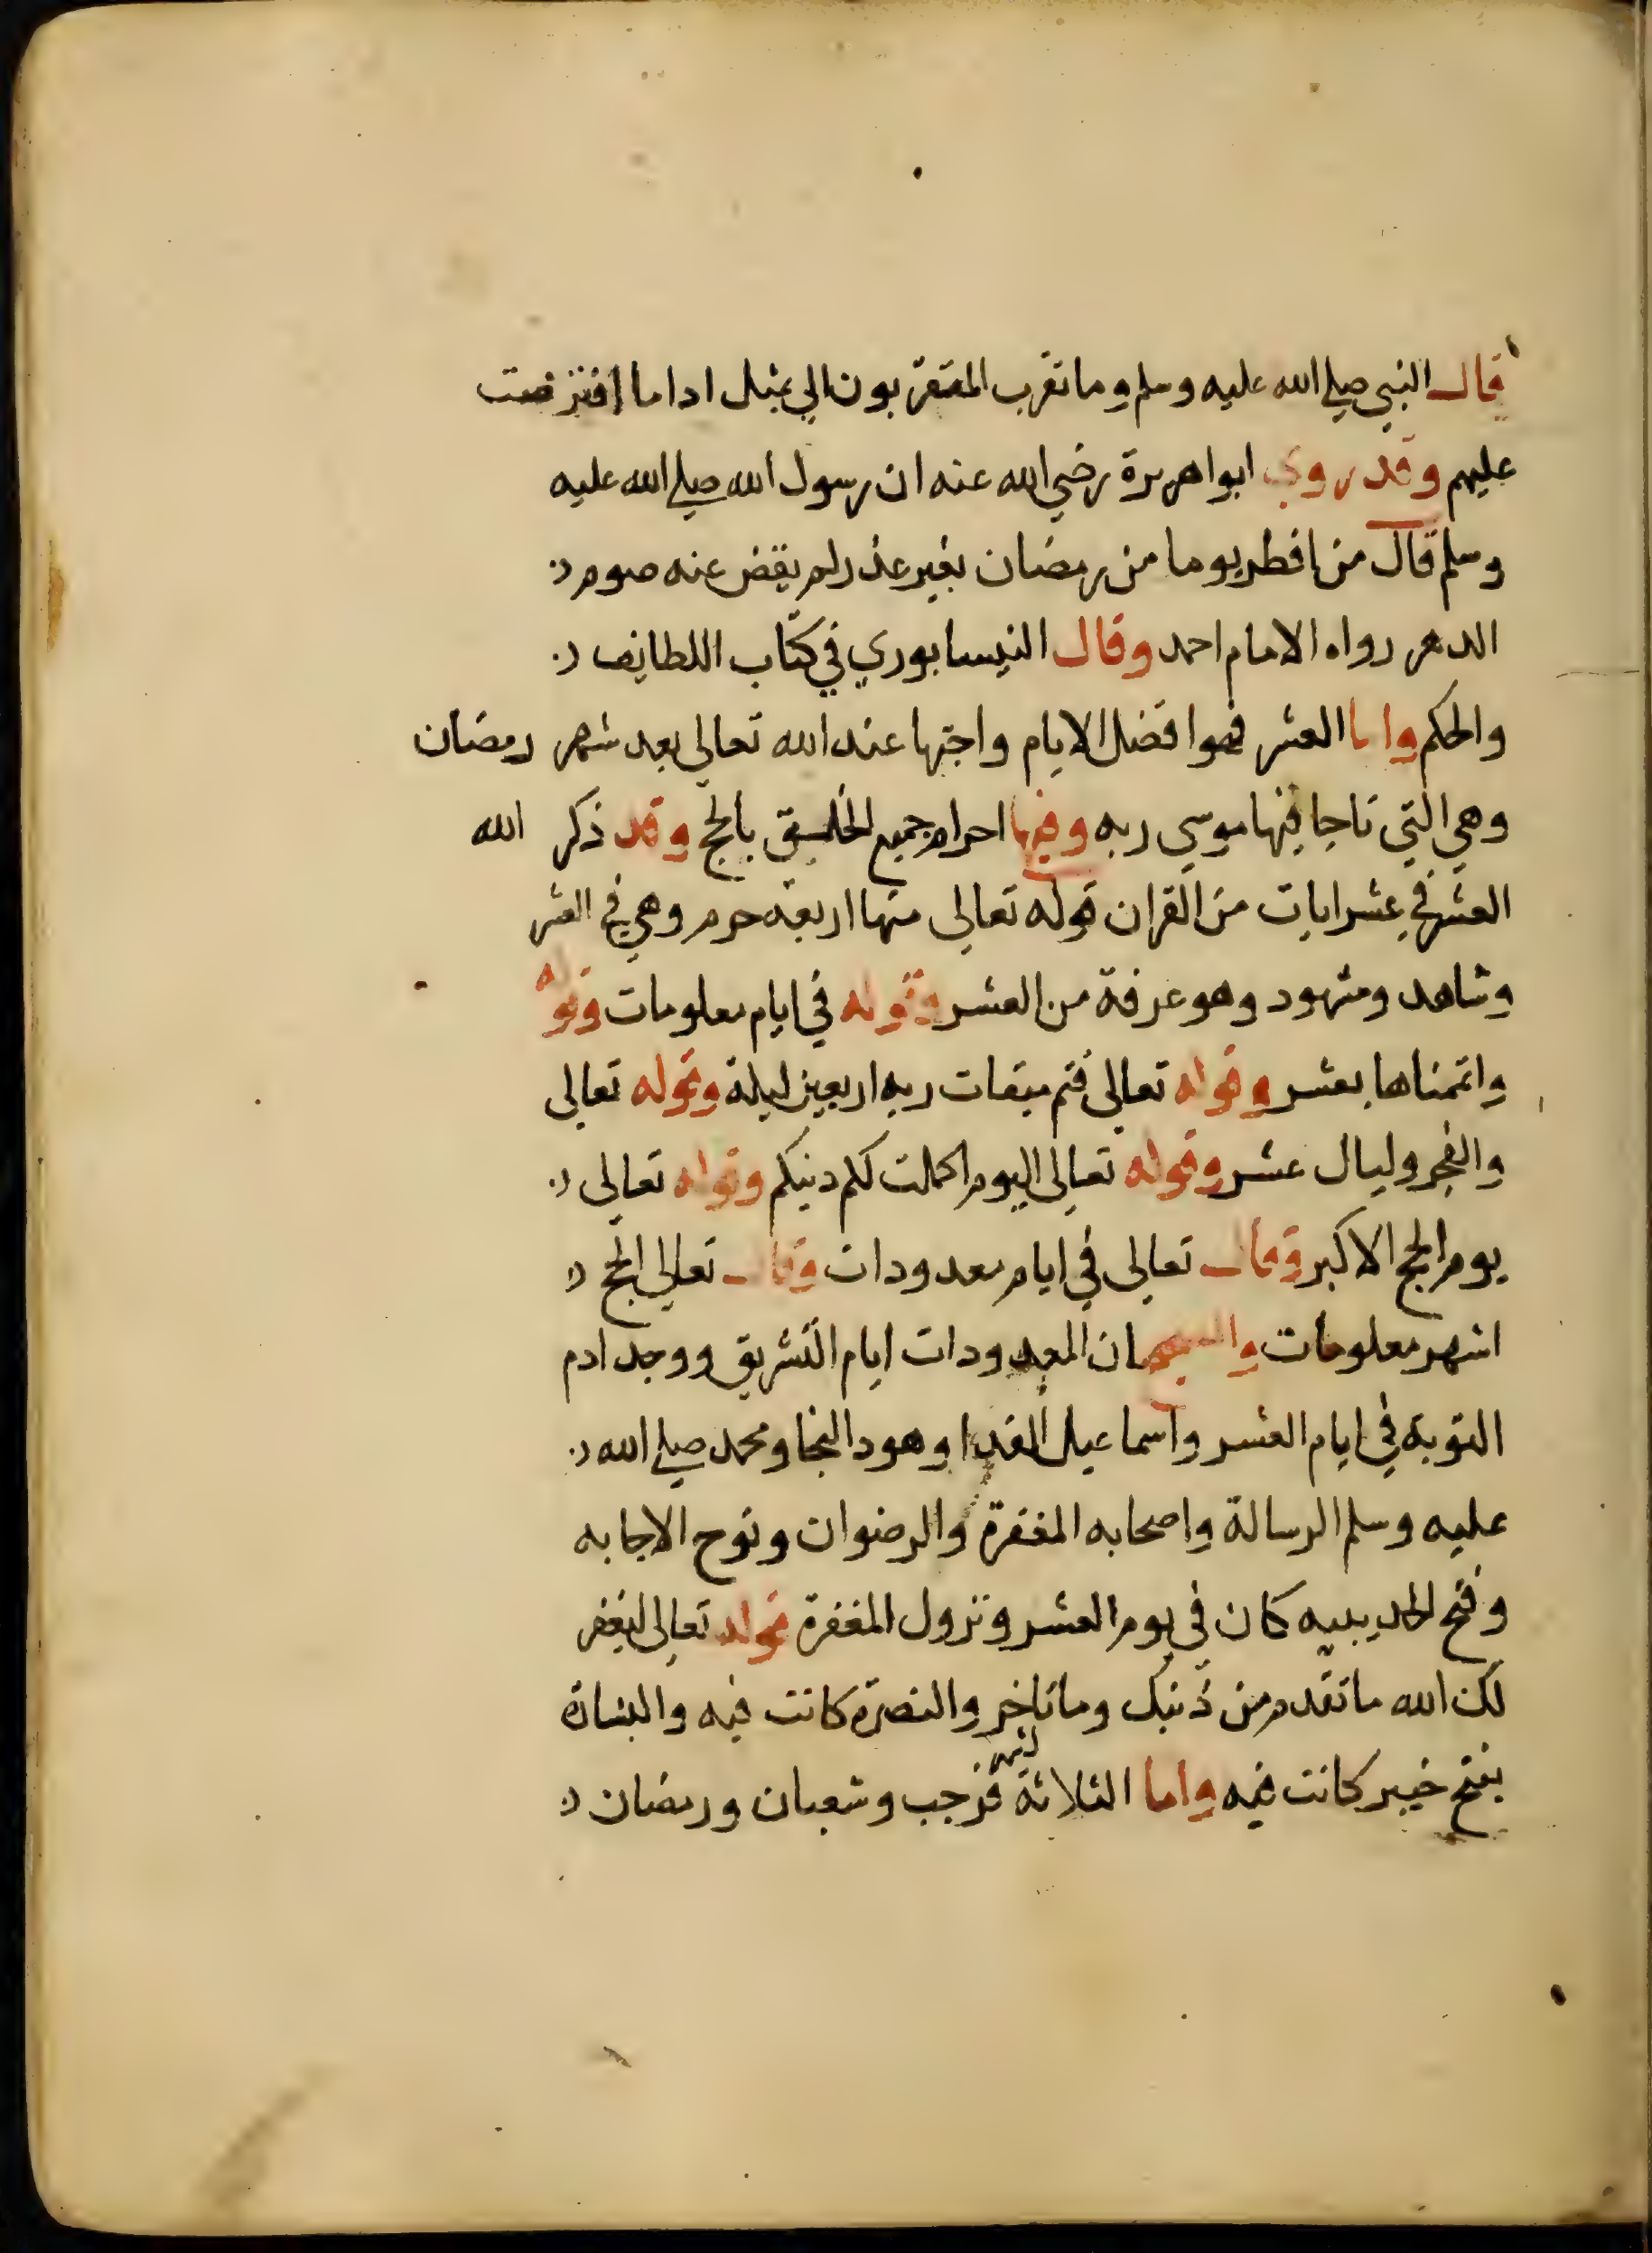 قال النبي صلي الله عليه وسلم وما تقرب المتقربون الي بمثل ادا ما افترضت
عليهم وقد روي ابوا هريرة رضي الله عنه ان رسول الله صلي الله عليه
وسلم قال من افطر يوما من رمضان بغير عذر لم يقض عنه صوم
الدهر رواه الامام احمد وقال النيسابوري في كتاب اللطايف
والحكم واما العشر فهوا فضل الايام واحبها عند الله تعالي بعد شهر رمضان
وهي التي ناجا فيها موسي ربه وفيها احرام جميع الخليق بالحج وقد ذكر الله
العشر في عشر ايات من القران قوله تعالى منها اربعة حرم وهي في العشر
وشاهد ومشهود وهو عرفة من العشر وقوله في ايام معلومات وقوله
واتممناها بعشر وقوله تعالى فتم ميقات ربه اربعين ليلة وقوله تعالى
والفجر وليال عشر وقوله تعالى اليوم اكملت لكم دينكم وقوله تعالى
يوم الحج الاكبر وقال تعالى في ايام معدودات وقال تعالي الحج
اشهر معلومات والصحيح ان المعدودات ايام التشريق ووجد ادم
التوبة في ايام العشر واسماعيل الفدا وهود النجا ومحمد صلي الله
عليه وسلم الرسالة واصحابه المغفرة والرضوان ونوح الاجابه
وفتح الحديبيه كان في يوم العشر ونزول المغفرة قوله تعالى ليغفر
لك الله ما تقدم من ذنبك وما تاخر والنصرة كانت فيه والبشارة
بفتح خيبر كانت فيه واما الثلاثة اشهر فرجب وشعبان ورمضان